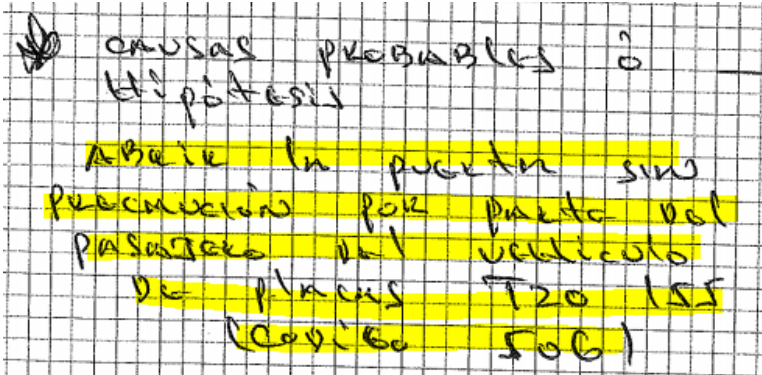 causas probables ó
Hipótesis
Abrir la puerta sin
precaución por parte del
pasajero del vehículo
de placas T20 155
(Codigo 506)